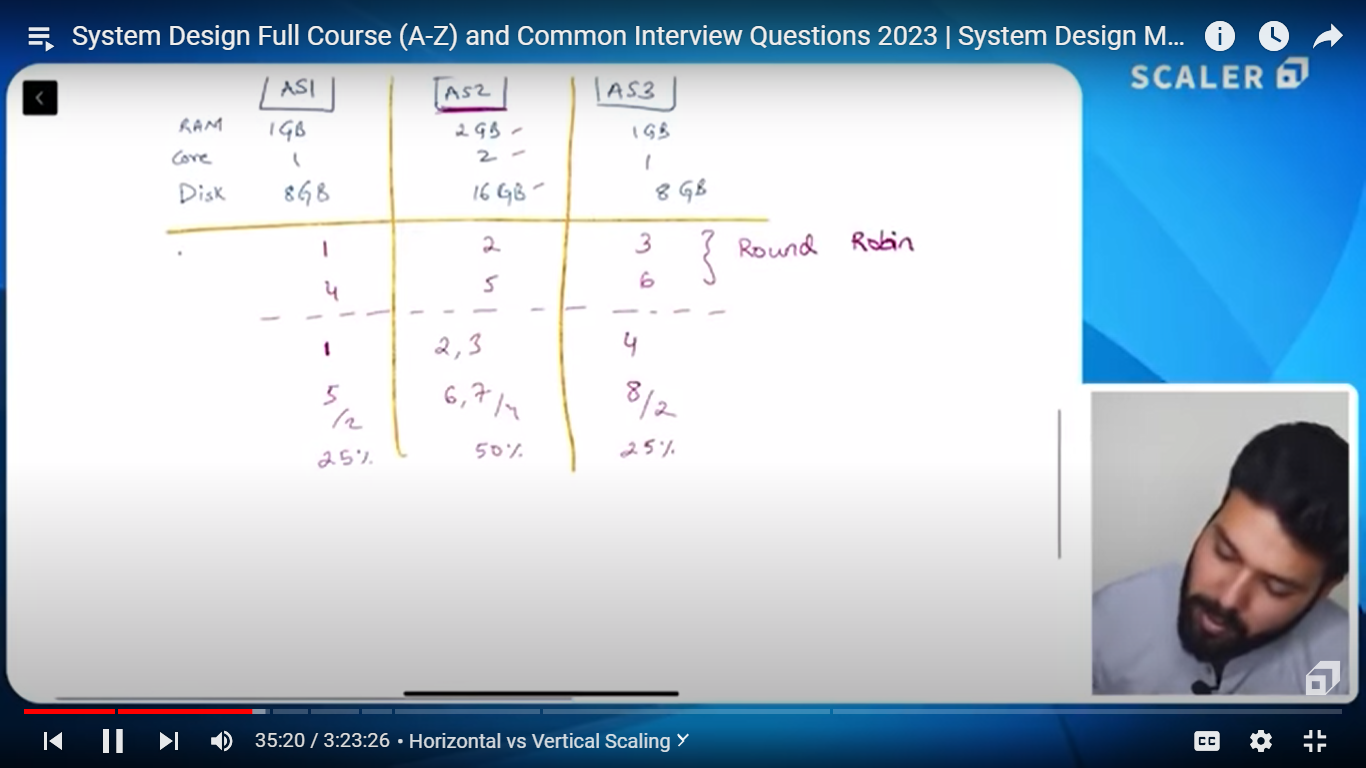 System Design Full Course (A-Z) and Common Interview Questions 2023 | System Design M...
SCALER
AS1 AS2 AS3
RAM 1GB 2GB 1GB
Core 1 2 1
Disk 8GB 16GB 8GB
1 2 3 Round Robin
4 5 6
1 2,3 4
5/2 6,7/4 8/2
25% 50% 25%
35:20 / 3:23:26 • Horizontal vs Vertical Scaling
CC